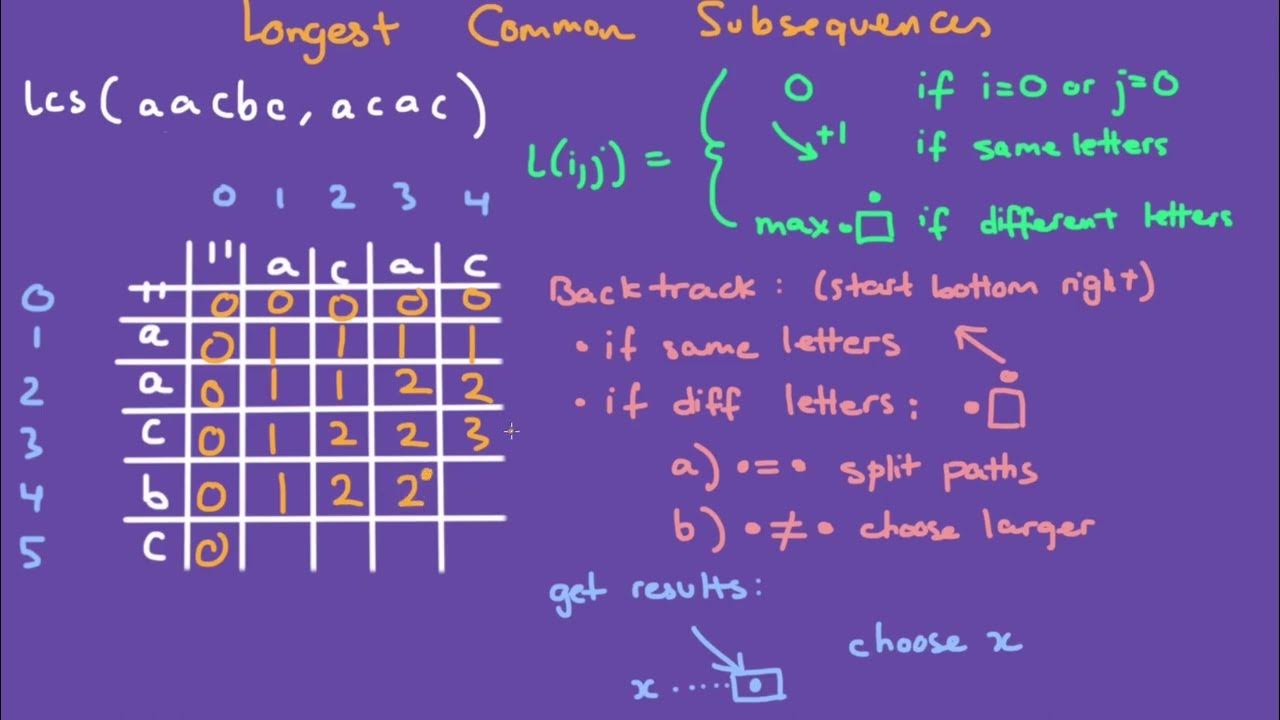 Longest Common Subsequences
lcs(aacbc, acac)
L(i,j) =
0 if i=0 or j=0
+1 if same letters
max if different letters
0 1 2 3 4
" a c a c
0 " 0 0 0 0 0
1 a 0 1 1 1 1
2 a 0 1 1 2 2
3 c 0 1 2 2 3
4 b 0 1 2 2
5 c 0
Backtrack: (start bottom right)
• if same letters
• if diff letters:
a) •=• split paths
b) •≠• choose larger
get results:
x ...... choose x